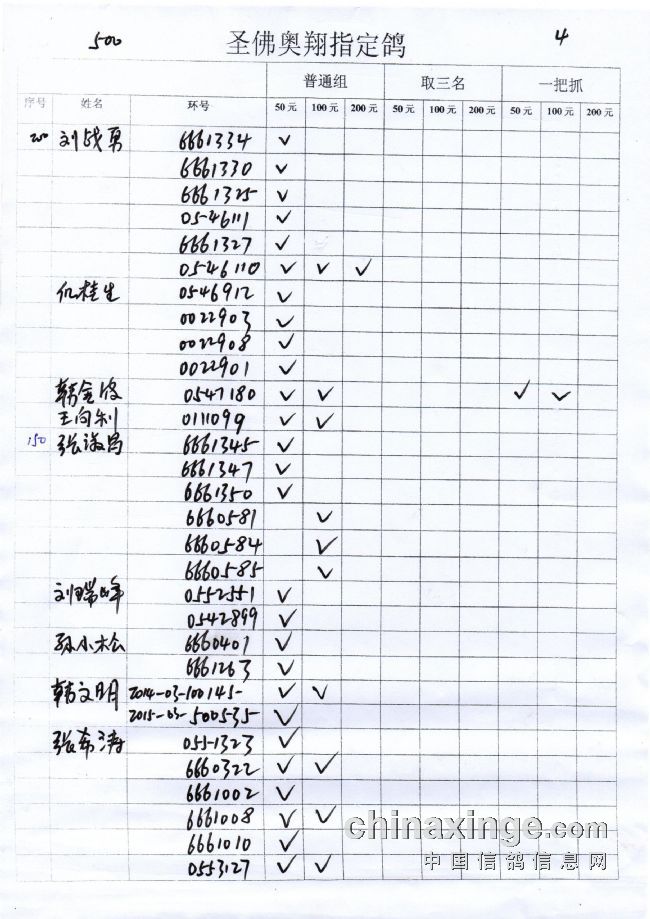 500 圣佛奥翔指定鸽 4
普通组 取三名 一把抓
序号 姓名 环号 50元 100元 200元 50元 100元 200元 50元 100元 200元
刘战勇 6661334 ✓
6661330 ✓
6661325 ✓
0546111 ✓
6661327 ✓
0546110 ✓ ✓ ✓
仉桂生 0546912 ✓
0022903 ✓
0022908 ✓
0022901 ✓
韩金波 0547180 ✓ ✓ ✓ ✓
王向利 0111099 ✓ ✓
150 张淑昌 6661345 ✓
6661347 ✓
6661350 ✓
6660581 ✓
6660584 ✓
6660585 ✓
刘瑞峰 0552551 ✓
0542899 ✓
孙小松 6660401 ✓
6661263 ✓
韩文明 2014-03-100145- ✓ ✓
2015-03-500535 ✓
张希涛 0551323 ✓
6660322 ✓ ✓
6661002 ✓
6661008 ✓ ✓
chinaxinge.com
6661010 ✓
中国信鸽信息网
0553127 ✓ ✓